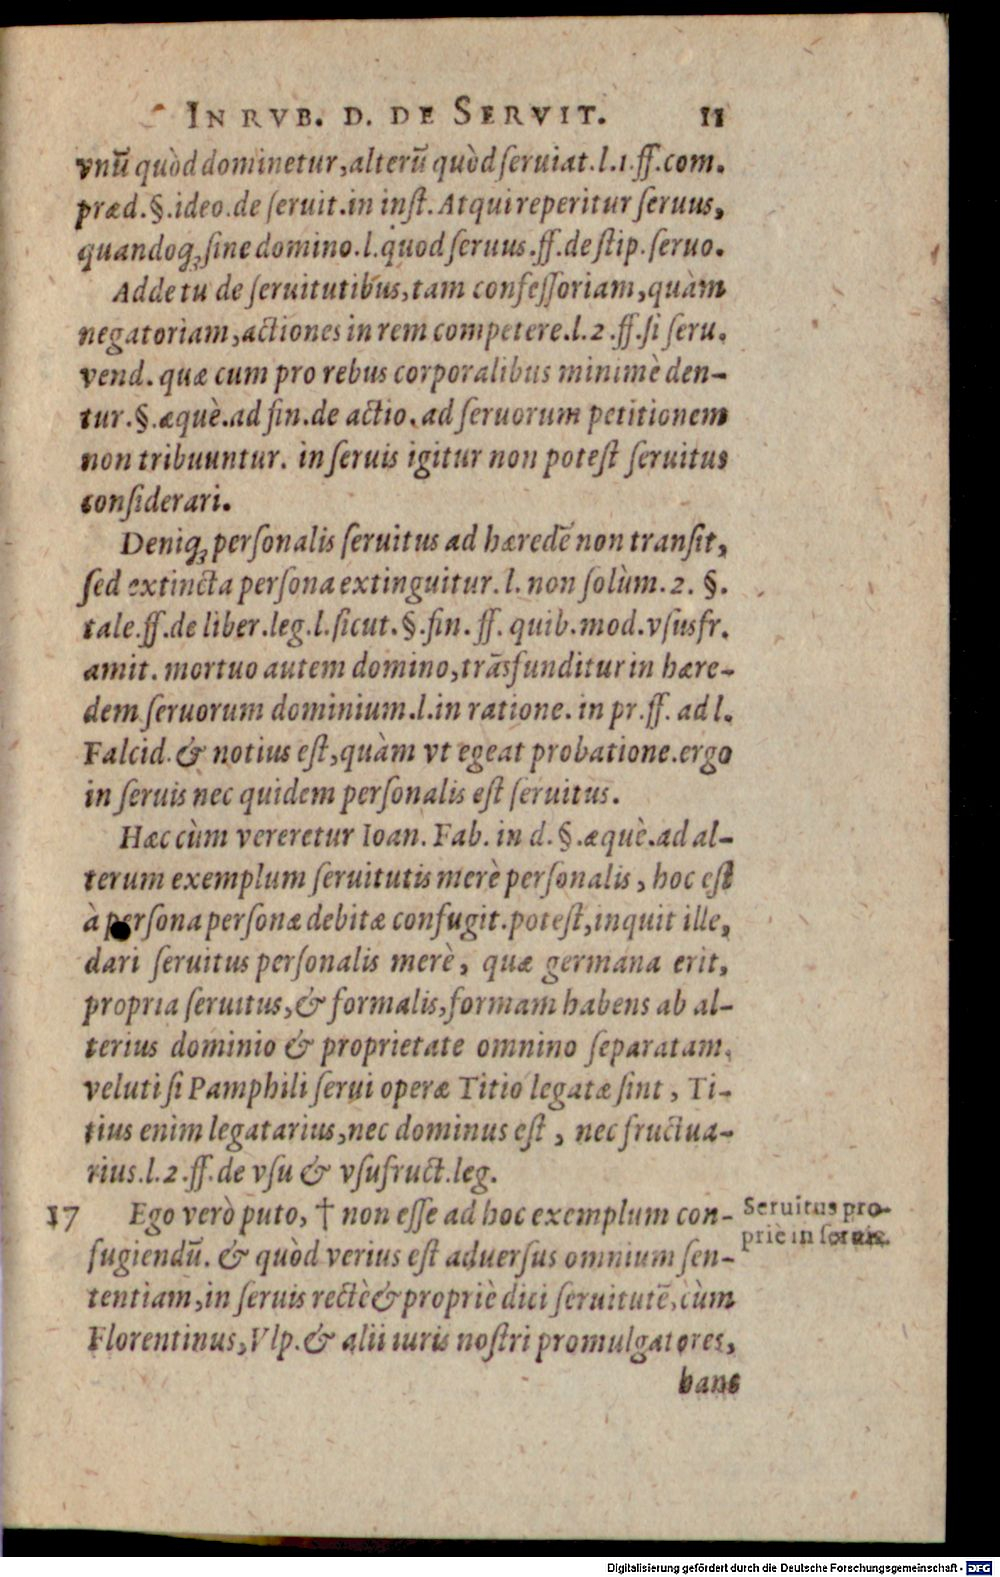 IN RVB. D. DE SERVIT. 11
vnū quòd dominetur, alterū quòd seruiat. l. 1. ff. com.
præd. §. ideo. de seruit. in inst. Atqui reperitur seruus,
quandoq; sine domino. l. quod seruus. ff. de stip. seruo.
Adde tu de seruitutibus, tam confessoriam, quàm
negatoriam, actiones in rem competere. l. 2. ff. si seru.
vend. quæ cum pro rebus corporalibus minimè den-
tur. §. æquè. ad fin. de actio. ad seruorum petitionem
non tribuuntur. in seruis igitur non potest seruitus
considerari.
Deniq; personalis seruitus ad hæredē non transit,
sed extincta persona extinguitur. l. non solùm. 2. §.
tale. ff. de liber. leg. l. sicut. §. fin. ff. quib. mod. vsusfr.
amit. mortuo autem domino, trāsfunditur in hære-
dem seruorum dominium. l. in ratione. in pr. ff. ad l.
Falcid. & notius est, quàm vt egeat probatione. ergo
in seruis nec quidem personalis est seruitus.
Hæc cùm vereretur Ioan. Fab. in d. §. æquè. ad al-
terum exemplum seruitutis merè personalis, hoc est
à persona personæ debitæ confugit. potest, inquit ille,
dari seruitus personalis merè, quæ germana erit,
propria seruitus, & formalis, formam habens ab al-
terius dominio & proprietate omnino separatam,
veluti si Pamphili serui operæ Titio legatæ sint, Ti-
tius enim legatarius, nec dominus est, nec fructua-
rius. l. 2. ff. de vsu & vsufruct. leg.
17 Ego verò puto, † non esse ad hoc exemplum con-
fugiendū. & quòd verius est aduersus omnium sen-
tentiam, in seruis rectè & propriè dici seruitutē, cùm
Florentinus, Vlp. & alii iuris nostri promulgatores,
hanc
Seruitus pro-
priè in seruis.
Digitalisierung gefördert durch die Deutsche Forschungsgemeinschaft - DFG